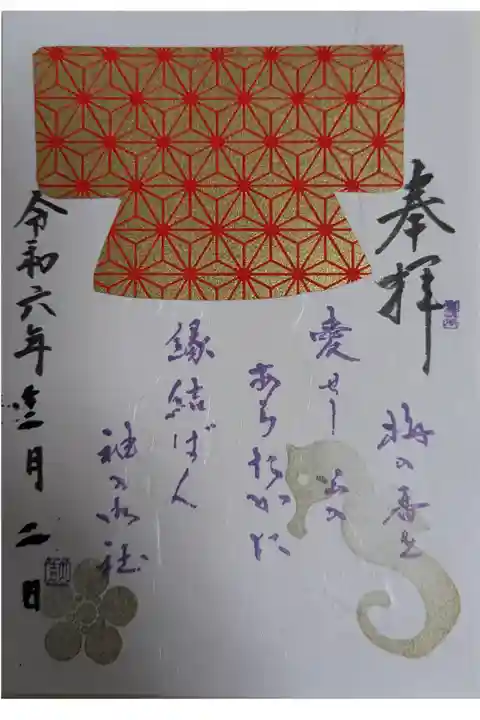 奉拝
梅の香を
愛せし
あらたかに
縁結ばん
袖の御社
令和六年十二月二日